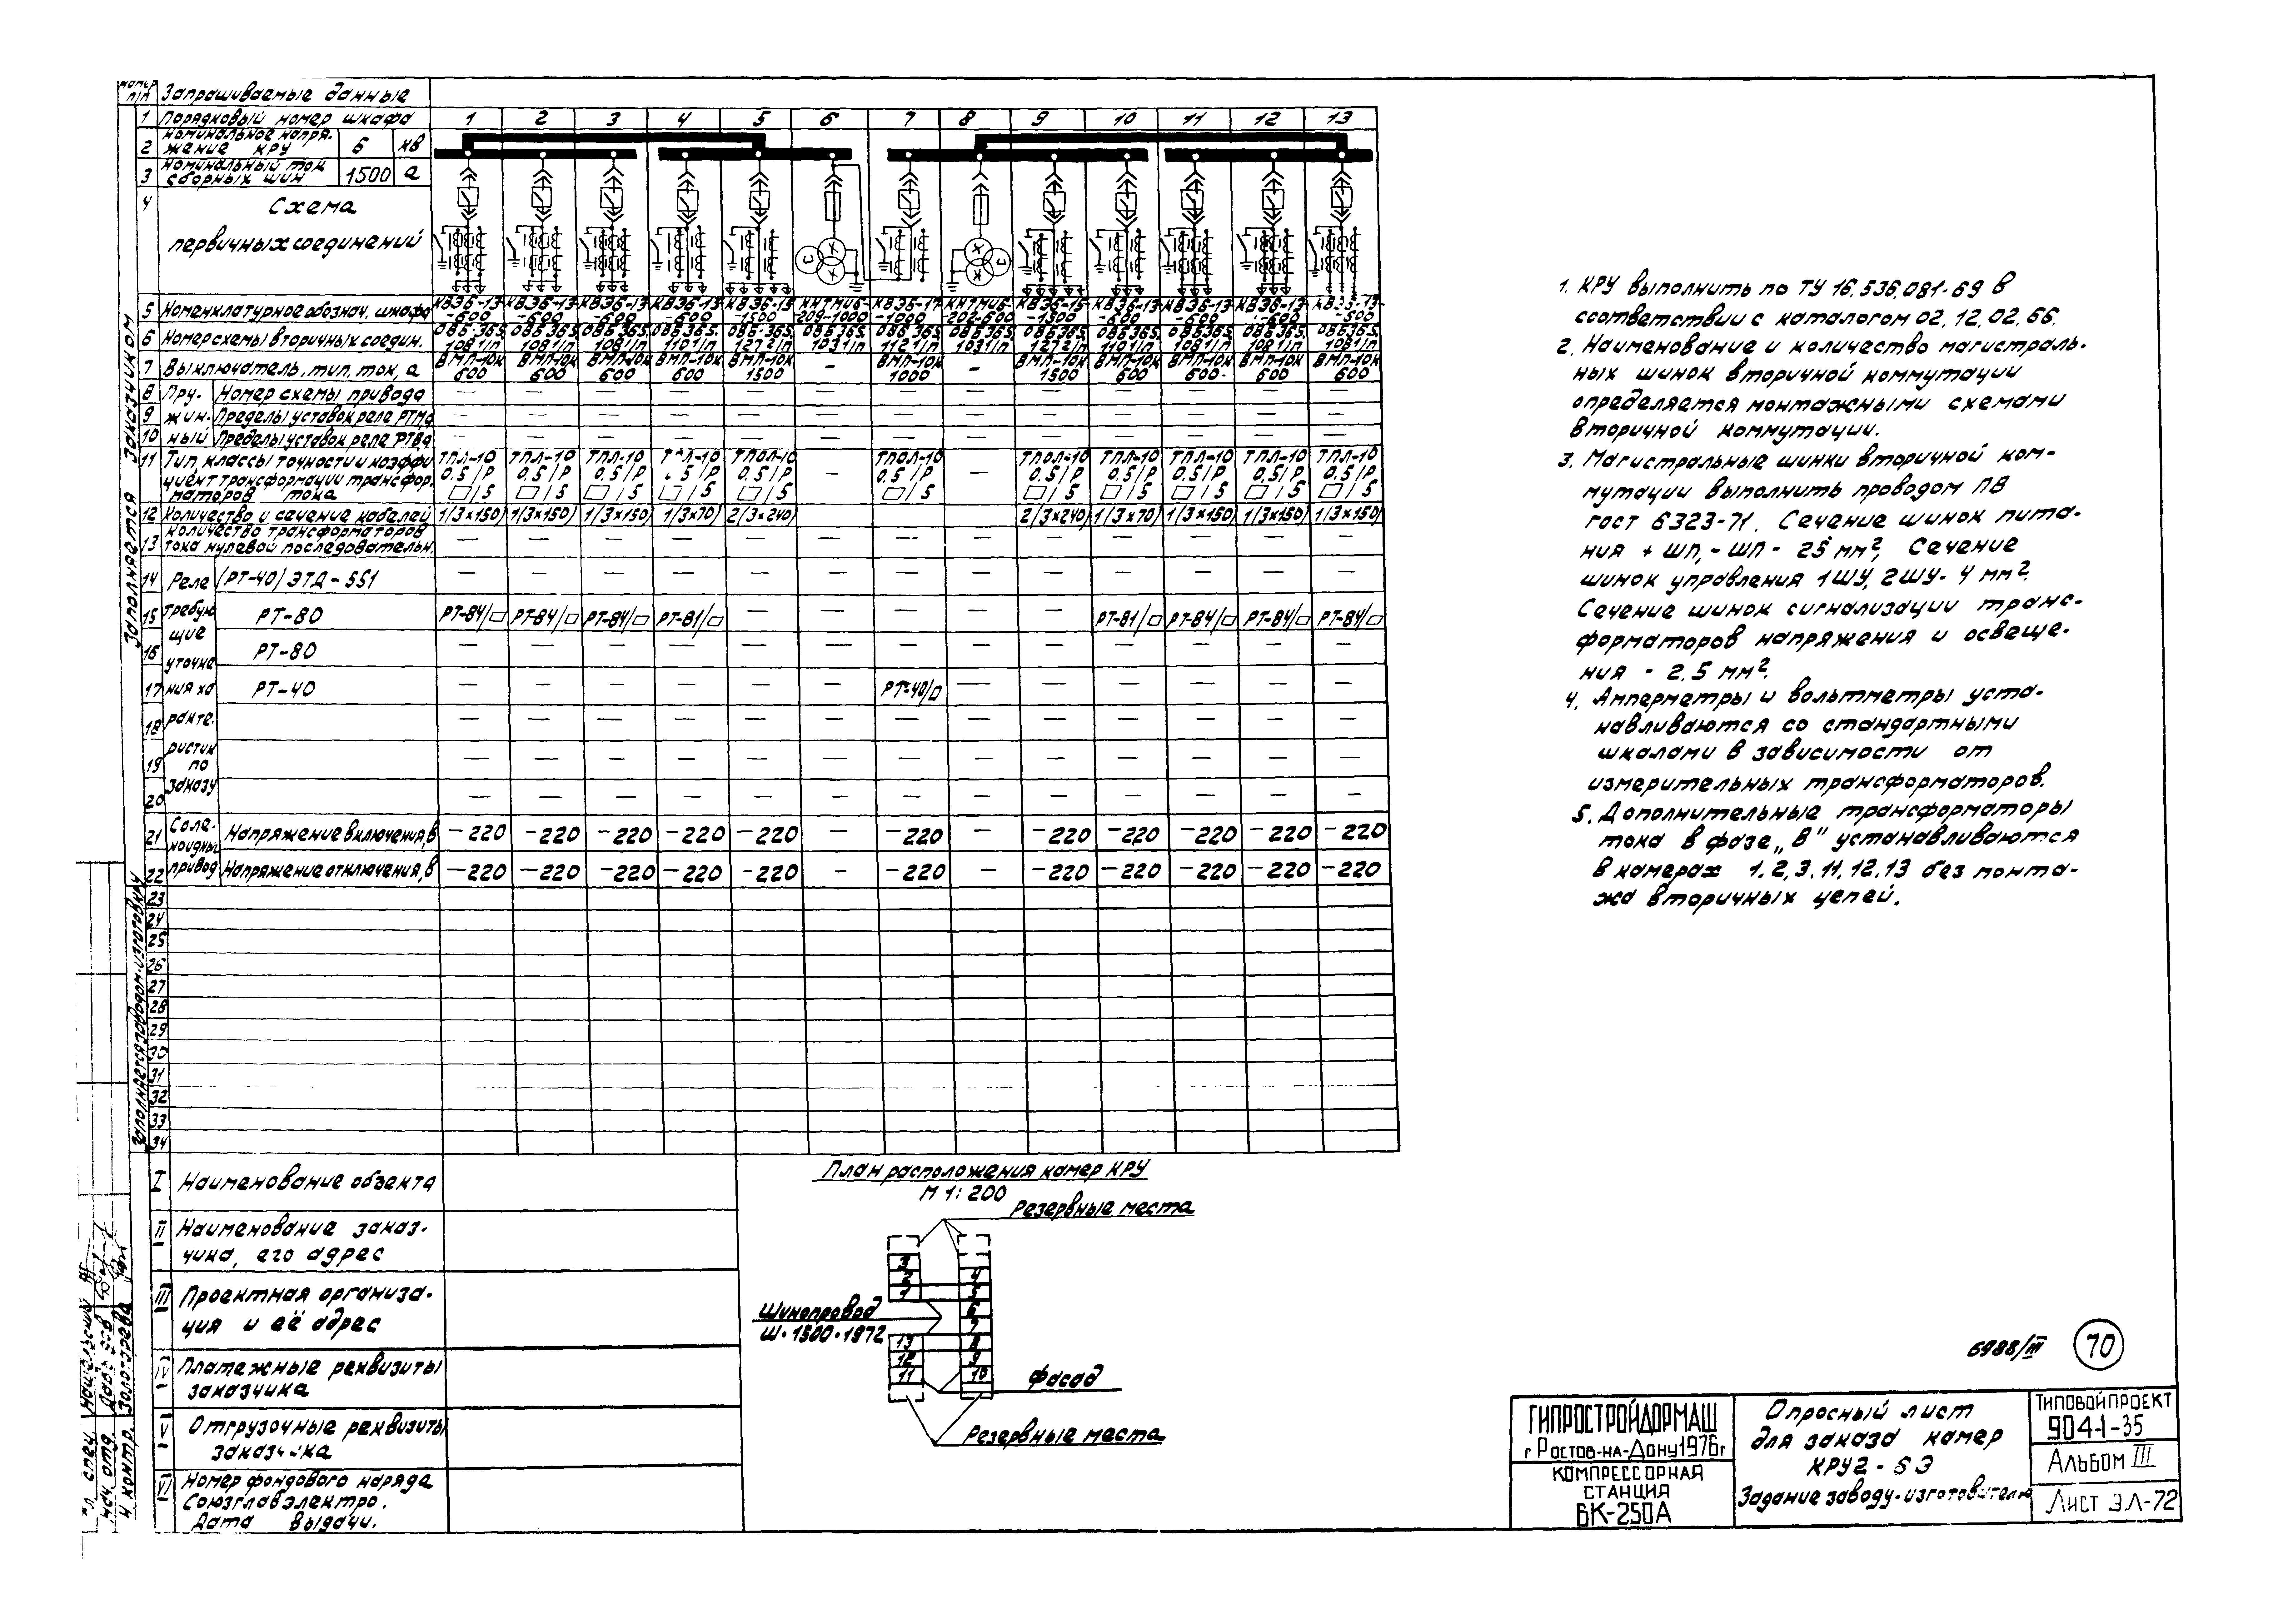 Запрашиваемые данные
1 Порядковый номер шкафа 1 2 3 4 5 6 7 8 9 10 11 12 13
2 Номинальное напряжение КРУ 6 кв
3 Номинальный ток сборных шин 1500 а
4 Схема
первичных соединений
5 Номенклатурное обознач. шкафа КВЭ6-13 -600 КВЭ6-13 -600 КВЭ6-13 -600 КВЭ6-13 -600 КВЭ6-15 -1500 209-1000 -1000 202-600 КВЭ6-15 -1500 КВЭ6-13 -600 КВЭ6-13 -600 КВЭ6-13 -600
6 Номер схемы вторичных соедин.
7 Выключатель, тип, ток, а ВМП-10К 600 ВМП-10К 600 ВМП-10К 600 ВМП-10К 600 ВМП-10К 1500 — ВМП-10К 1000 — ВМП-10К 1500 ВМП-10К 600 ВМП-10К 600 ВМП-10К 600 ВМП-10К 600
8 Пру- Номер схемы привода — — — — — — — — — — — — —
9 жин- Пределы уставок реле РТМ, а — — — — — — — — — — — — —
10 ный Пределы уставок реле РТВ, а — — — — — — — — — — — — —
11 Тип, классы точности и коэффи
циент трансформации трансфор.
маторов тока
ТПЛ-10 0.5/Р □/5 ТПЛ-10 0.5/Р □/5 ТПЛ-10 0.5/Р □/5 ТПОЛ-10 0.5/Р □/5 — ТПОЛ-10 0.5/Р □/5 — ТПОЛ-10 0.5/Р □/5 ТПЛ-10 0.5/Р □/5 ТПЛ-10 0.5/Р □/5 ТПЛ-10 0.5/Р □/5 ТПЛ-10 0.5/Р □/5
12 Количество и сечение кабелей 1(3×150) 1(3×150) 1(3×150) 1(3×70) 2(3×240) 2(3×240) 1(3×70) 1(3×150) 1(3×150) 1(3×150)
13 Количество трансформаторов
тока нулевой последовательн. — — — — — — — — — — — — —
14 Реле (РТ-40) ЭТД-551 — — — — — — — — — — — — —
15 требую РТ-80 РТ-84/□ РТ-84/□ РТ-84/□ РТ-81/□ — — — — — РТ-81/□ РТ-84/□ РТ-84/□ РТ-84/□
щие
16 уточне РТ-80 — — — — — — — — — — — — —
17 ния ха РТ-40 — — — — — — РТ-40/□ — — — — — —
18 ракте. — — — — — — — — — — — — —
ристик
19 по — — — — — — — — — — — — —
20 заказу — — — — — — — — — — — — —
21 Соле- Напряжение включения, в −220 −220 −220 −220 −220 — −220 — −220 −220 −220 −220 −220
ноидный
22 привод Напряжение отключения, в −220 −220 −220 −220 −220 — −220 — −220 −220 −220 −220 −220
23
24
25
26
27
28
29
30
31
32
33
34
Заполняется заказчиком
Заполняется заводом-изготовит.
I Наименование объекта
II Наименование заказ-
чика, его адрес
III Проектная организа-
ция и её адрес
IV Платежные реквизиты
заказчика
V Отгрузочные реквизиты
заказчика
VI Номер фондового наряда
Союзглавэлектро.
Дата выдачи.
План расположения камер КРУ
М 1:200
Резервные места
3
2 4
1 5
6
7
13 8
12 9
11 10
Шинопровод
Ш-1500-1972
Фасад
Резервные места
1. КРУ выполнить по ТУ 16.536.081-69 в
соответствии с каталогом 02.12.02.66.
2. Наименование и количество магистраль-
ных шинок вторичной коммутации
определяется монтажными схемами
вторичной коммутации.
3. Магистральные шинки вторичной ком-
мутации выполнить проводом ПВ
ГОСТ 6323-71. Сечение шинок пита-
ния + ШП, - ШП - 25 мм², Сечение
шинок управления 1ШУ, 2ШУ- 4 мм².
Сечение шинок сигнализации транс-
форматоров напряжения и освеще-
ния - 2,5 мм².
4. Амперметры и вольтметры уста-
навливаются со стандартными
шкалами в зависимости от
измерительных трансформаторов.
5. Дополнительные трансформаторы
тока в фазе „В" устанавливаются
в камерах 1, 2, 3, 11, 12, 13 без монта-
жа вторичных цепей.
6988/III 70
ГИПРОСТРОЙДОРМАШ
г. Ростов-на-Дону 1976г
КОМПРЕССОРНАЯ
СТАНЦИЯ
БК-250А
Опросный лист
для заказа камер
КРУ2-6Э
Задание заводу-изготовителю
ТИПОВОЙ ПРОЕКТ
904-1-35
АЛЬБОМ III
Лист ЭЛ-72
Гл. спец.
Нач. отд.
Н. контр. Золотарева